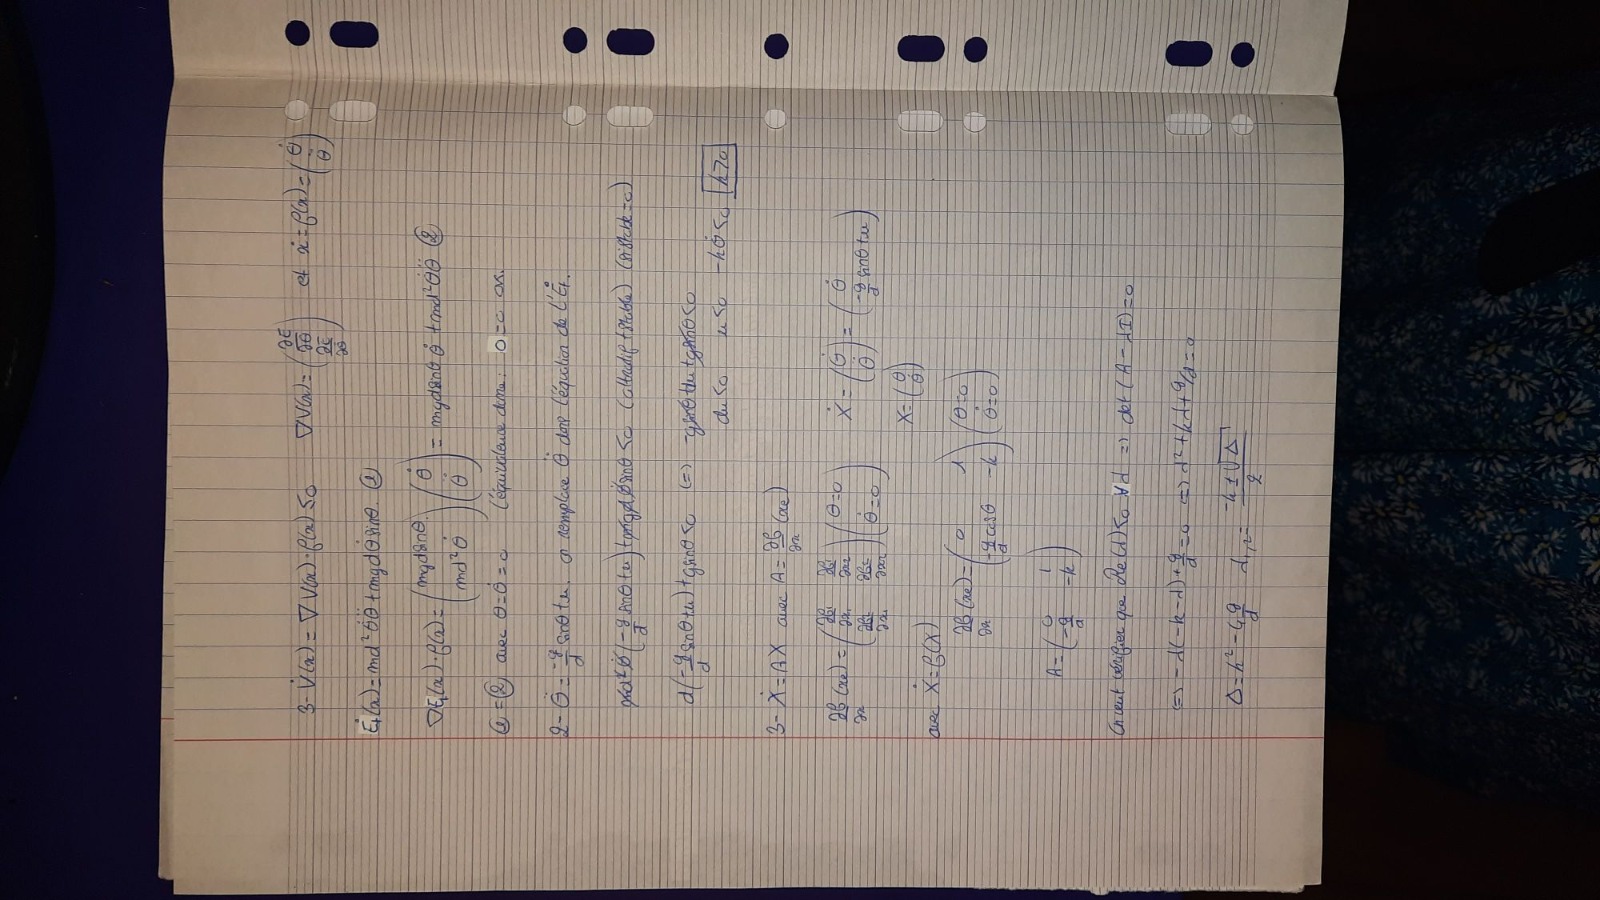 3- V̇(x) = ∇V(x)·f(x) ≤ 0   ∇V(x) = (∂E/∂θ ; ∂E/∂θ̇)   et ẋ = f(x) = (θ̇ ; θ̈)
Ėt(x) = md²θ̇θ̈ + mgdθ̇sinθ. ①
∇Et(x)·f(x) = (mgdsinθ ; md²θ̇)(θ̇ ; θ̈) = mgdsinθ θ̇ + md²θ̇θ̈ ②
① = ② avec θ=θ̇=0   L'équivalence donne : 0=0 ok.
2- θ̈ = -g/d sinθ + u. on remplace θ̈ dans l'équation de l'Ėt.
md²θ̇(-g/d sinθ + u) + mgdθ̇sinθ < 0 (attractif + stable) (si stable = 0)
d(-g/d sinθ + u) + gsinθ < 0 <=> -gsinθ + du + gsinθ < 0
du < 0   u < 0   -kθ̇ < 0   k > 0
3- Ẋ = AX avec A = ∂f/∂x (xe)
∂f/∂x (xe) = (∂f1/∂x1 ∂f1/∂x2 ; ∂f2/∂x1 ∂f2/∂x2)(θ=0 ; θ̇=0)   Ẋ = (θ̇ ; θ̈) = (θ̇ ; -g/d sinθ + u)
X = (θ ; θ̇)
avec Ẋ = f(X)
∂f/∂x (xe) = (0 1 ; -g/d cosθ -k)(θ=0 ; θ̇=0)
A = (0 1 ; -g/d -k)
On veut vérifier que Re(λ) < 0 ∀λ => det(A - λI) = 0
<=> -λ(-k-λ) + g/d = 0 <=> λ² + kλ + g/d = 0
Δ = k² - 4g/d   λ1,2 = (-k ± √Δ)/2